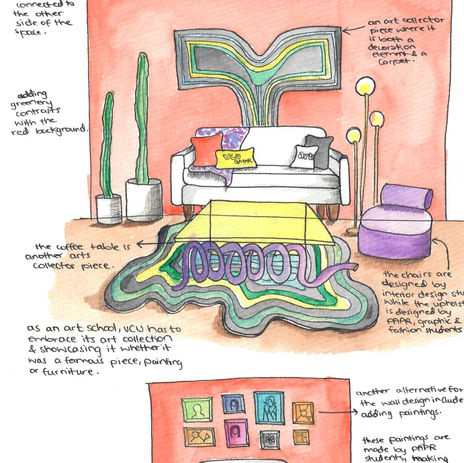 connected to
the other
side of the
space.
an art collector
piece where it
is both a
decoration
element & a
carpet.
adding
greenery
contrasts
with the
red background.
VCU
QATAR
the coffee table is
another arts
collector piece.
the chairs are
designed by
interior design stu
while the uphols
is designed by
PAPR, graphic &
fashion students
as an art school, VCU has to
embrace its art collection
& showcasing it whether it
was a famous piece, painting
or furniture.
another alternative for
the wall design include
adding paintings.
these paintings are
made by PAPR
students, making